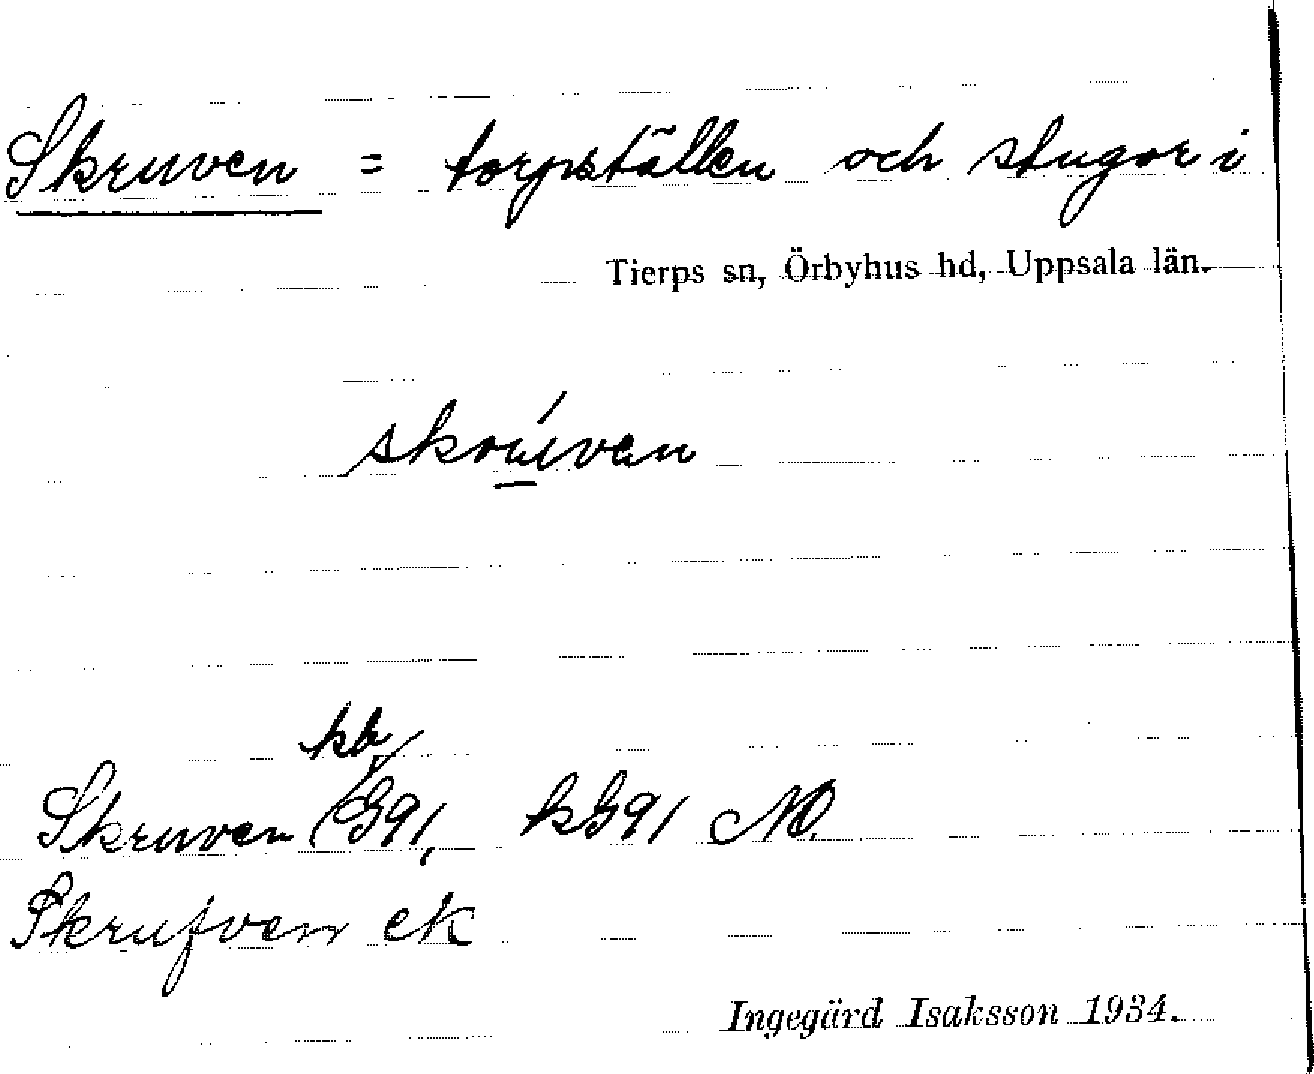 Skruven = torpställen och stugor i
Tierps sn, Örbyhus hd, Uppsala län.
skrúven
kb
Skruven G91, kG91 NO
Skrufven ek
Ingegärd Isaksson 1934.